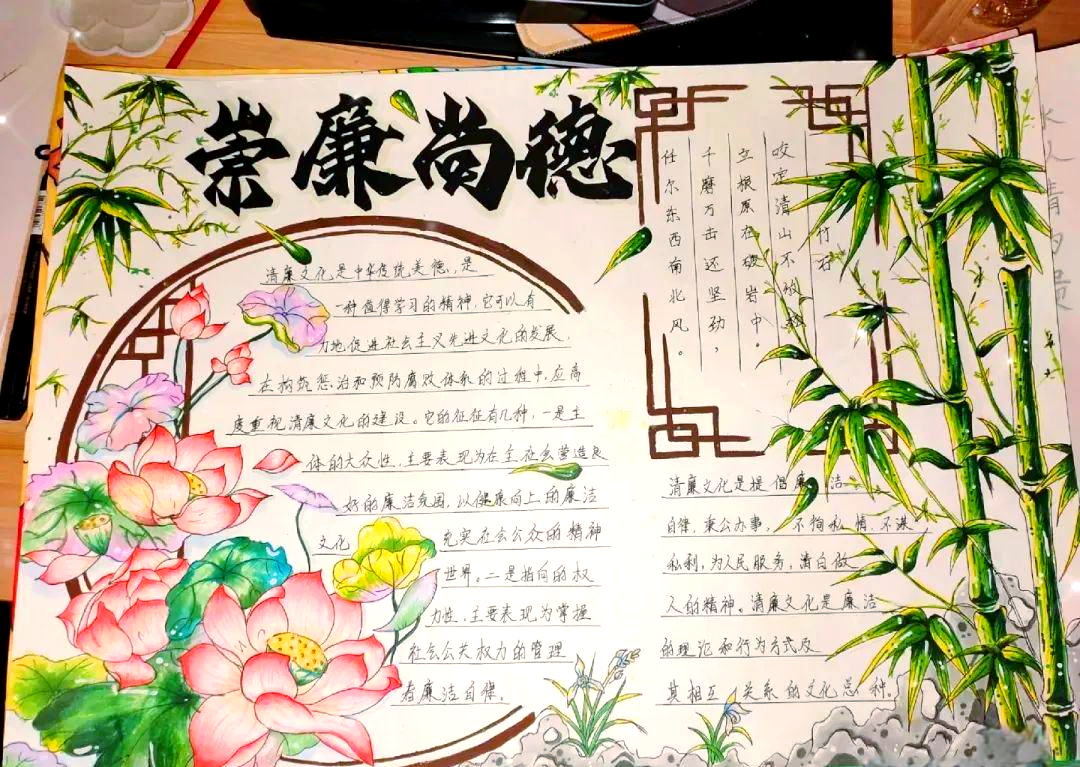 崇廉尚德
竹石
咬定清山不放松
立根原在破岩中。
千磨万击还坚劲，
任尔东西南北风。
清廉文化是中华传统美德，是
一种值得学习的精神，它可以有
力地促进社会主义先进文化的发展，
在构筑惩治和预防腐败体系的过程中，应高
度重视清廉文化的建设。它的征征有几种，一是主
体的大众性，主要表现为在全社会营造良
好的廉洁氛围，以健康向上的廉洁
文化 充实社会公众的精神
世界。二是指向的权
力性，主要表现为掌握
社会公共权力的管理
者廉洁自律。
清廉文化是提倡廉洁
自律，秉公办事，不徇私情，不谋
私利，为人民服务，清白做
人的精神。清廉文化是廉洁
的理论和行为方式及
其相互关系的文化总种。